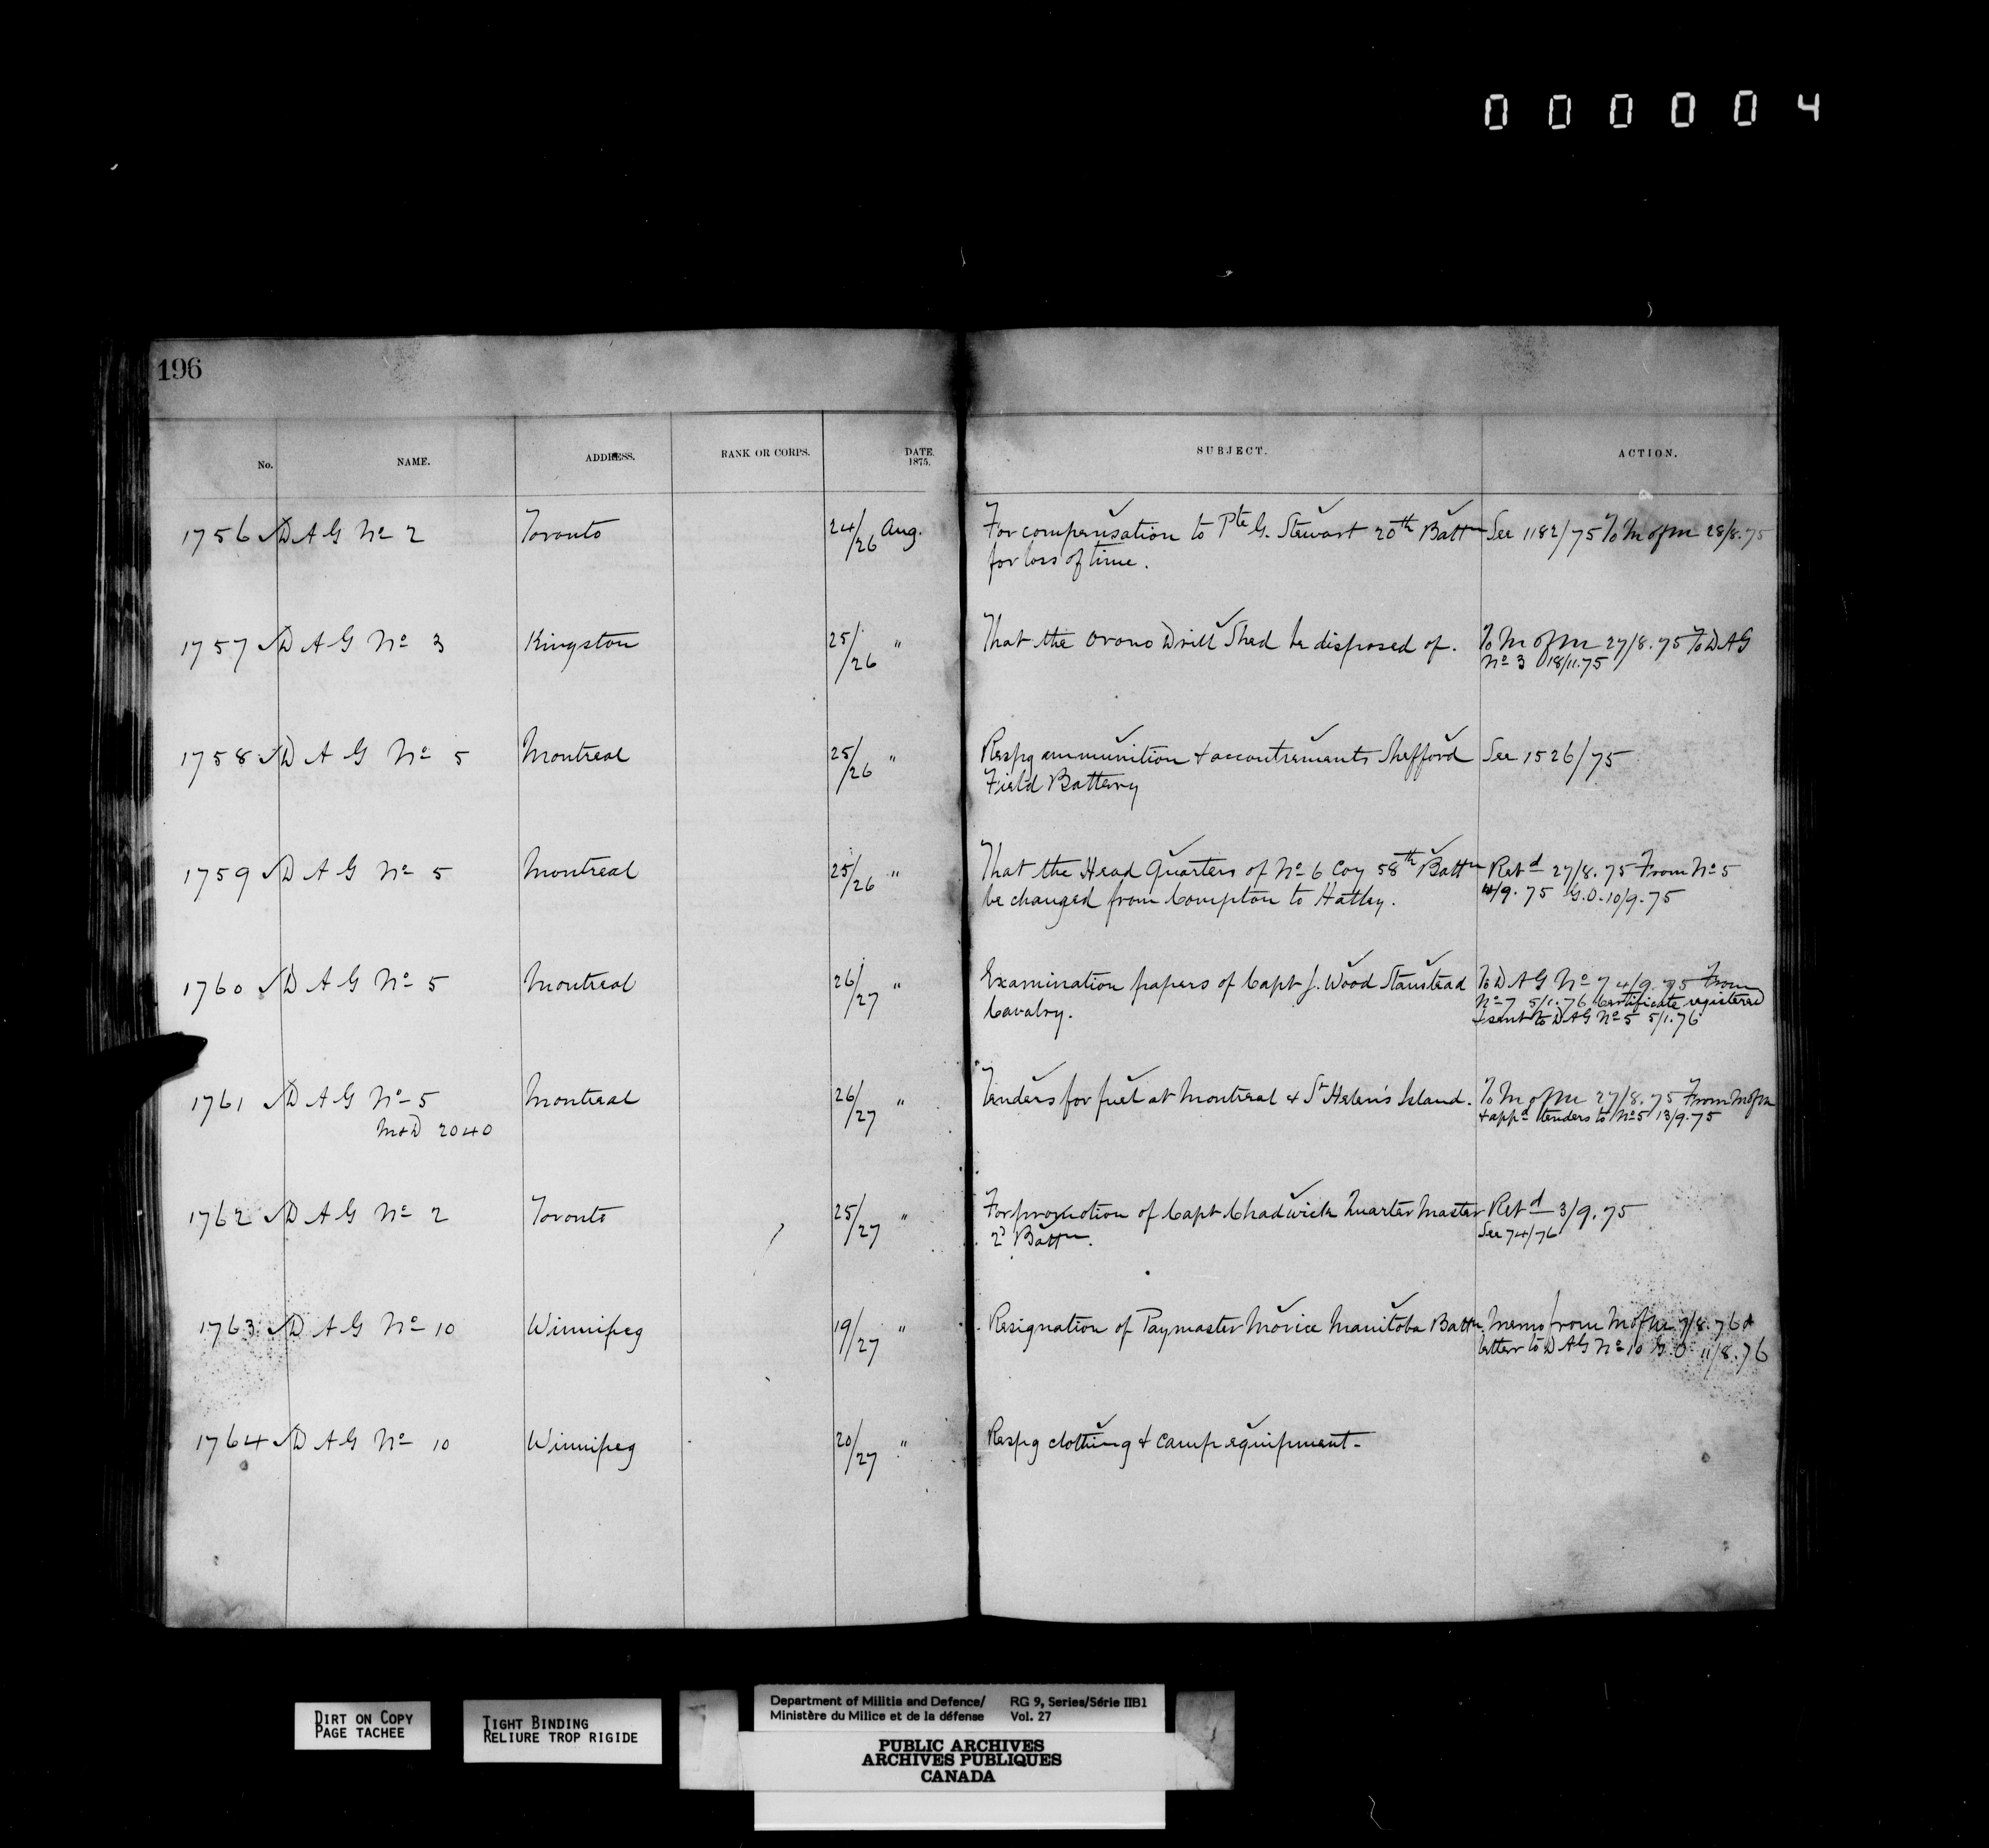 000004
196
No. NAME. ADDRESS. RANK OR CORPS. DATE. 1875. SUBJECT. ACTION.
1756 D A G No 2 Toronto 24/26 Aug. For compensation to Pte G. Stewart 20th Battn See 1182/75 To M of M 28/8.75
for loss of time.
1757 D A G No 3 Kingston 25/26 " That the Orono Drill Shed be disposed of. To M of M 27/8.75 To D A G
No 3 18/11.75
1758 D A G No 5 Montreal 25/26 " Respg ammunition & accoutrements Shefford See 1526/75
Field Battery
1759 D A G No 5 Montreal 25/26 " That the Head Quarters of No 6 Coy 58th Battn Retd 27/8.75 From No 5
be changed from Compton to Hatley. 4/9.75 G.O. 10/9.75
1760 D A G No 5 Montreal 26/27 " Examination papers of Capt J. Wood Stanstead To D A G No 7 4/9.75 From
Cavalry. No 7 5/1.76 Certificate registered
& sent to D A G No 5 5/1.76
1761 D A G No 5 Montreal 26/27 " Tenders for fuel at Montreal & St Helen's Island. To M of M 27/8.75 From M of M
M & D 2040 & appd tenders to No 5 13/9.75
1762 D A G No 2 Toronto 25/27 " For promotion of Capt Chadwick Quarter Master Retd 3/9.75
2d Battn. See 74/76
1763 D A G No 10 Winnipeg 19/27 " Resignation of Paymaster Morice Manitoba Battn. Memo from M of M 7/8.76 &
letter to D A G No 10 G.O. 11/8.76
1764 D A G No 10 Winnipeg 20/27 " Respg clothing & camp equipment.
DIRT ON COPY
PAGE TACHEE
TIGHT BINDING
RELIURE TROP RIGIDE
Department of Militia and Defence/ RG 9, Series/Série IIB1
Ministère du Milice et de la défense Vol. 27
PUBLIC ARCHIVES
ARCHIVES PUBLIQUES
CANADA